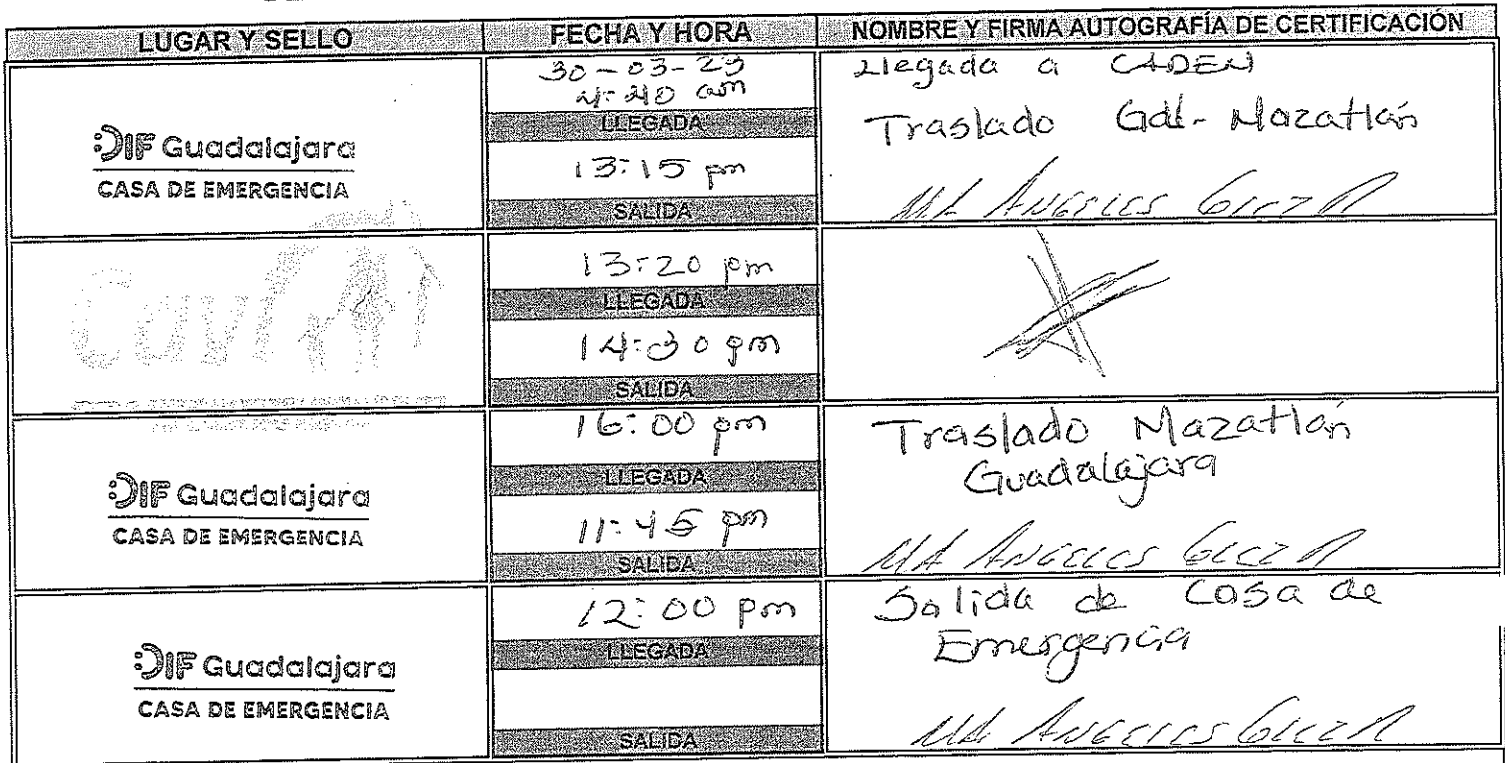 LUGAR Y SELLO
FECHA Y HORA
NOMBRE Y FIRMA AUTOGRAFÍA DE CERTIFICACIÓN
DIF Guadalajara
CASA DE EMERGENCIA
30-03-23
4:40 am
LLEGADA
13:15 pm
SALIDA
Llegada a CADEN
Traslado Gdl-Mazatlán
MA ANGELES
13:20 pm
LLEGADA
14:30 pm
SALIDA
DIF Guadalajara
CASA DE EMERGENCIA
16:00 pm
LLEGADA
11:45 pm
SALIDA
Traslado Mazatlán
Guadalajara
MA ANGELES
DIF Guadalajara
CASA DE EMERGENCIA
12:00 pm
LLEGADA
SALIDA
Salida de Casa de
Emergencia
MA ANGELES